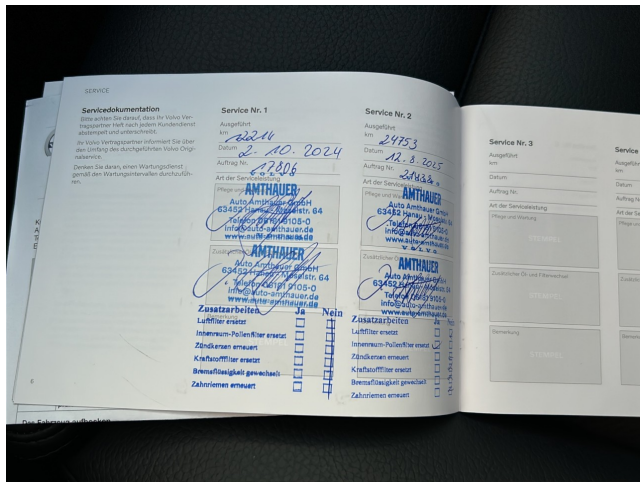 SERVICE
Servicedokumentation
Bitte achten Sie darauf, dass Ihr Volvo Ver-
tragspartner Heft nach jedem Kundendienst
abstempelt und unterschreibt.
Ihr Volvo Vertragspartner informiert Sie über
den Umfang des durchgeführten Volvo Origi-
nalservice.
Denken Sie daran, einen Wartungsdienst
gemäß den Wartungsintervallen durchzufüh-
ren.
6
Service Nr. 1
Ausgeführt
km
Datum 2. 10. 2024
Auftrag Nr. 17806
VOLVO
Art der Serviceleistung
Pflege und
AMTHAUER
Auto Amthauer GmbH
63452 Hanau · Moselstr. 64
Telefon 06181 9105-0
info@auto-amthauer.de
www.auto-amthauer.de
AMTHAUER
Auto Amthauer GmbH
63452 Hanau · Moselstr. 64
Telefon 06181 9105-0
info@auto-amthauer.de
www.auto-amthauer.de
Bemerkung
Zusatzarbeiten Ja Nein
Luftfilter ersetzt
Innenraum-Pollenfilter ersetzt
Zündkerzen erneuert
Kraftstofffilter ersetzt
Bremsflüssigkeit gewechselt
Zahnriemen erneuert
Service Nr. 2
Ausgeführt
km 24753
Datum 12. 8. 2025
Auftrag Nr.
Art der Serviceleistung
Pflege und
AMTHAUER
Auto Amthauer GmbH
63452 Hanau · Moselstr. 64
Telefon 06181 9105-0
info@auto-amthauer.de
www.auto-amthauer.de
VOLVO
AMTHAUER
Auto Amthauer GmbH
63452 Hanau · Moselstr. 64
Telefon 06181 9105-0
info@auto-amthauer.de
www.auto-amthauer.de
Zusatzarbeiten
Luftfilter ersetzt
Innenraum-Pollenfilter ersetzt
Zündkerzen erneuert
Kraftstofffilter ersetzt
Bremsflüssigkeit gewechselt
Zahnriemen erneuert
Service Nr. 3
Ausgeführt
km
Datum
Auftrag Nr.
Art der Serviceleistung
Pflege und Wartung
STEMPEL
Zusätzlicher Öl- und Filterwechsel
Bemerkung
STEMPEL
Service
Ausgeführt
km
Datum
Das Fahrzeug aufbocken